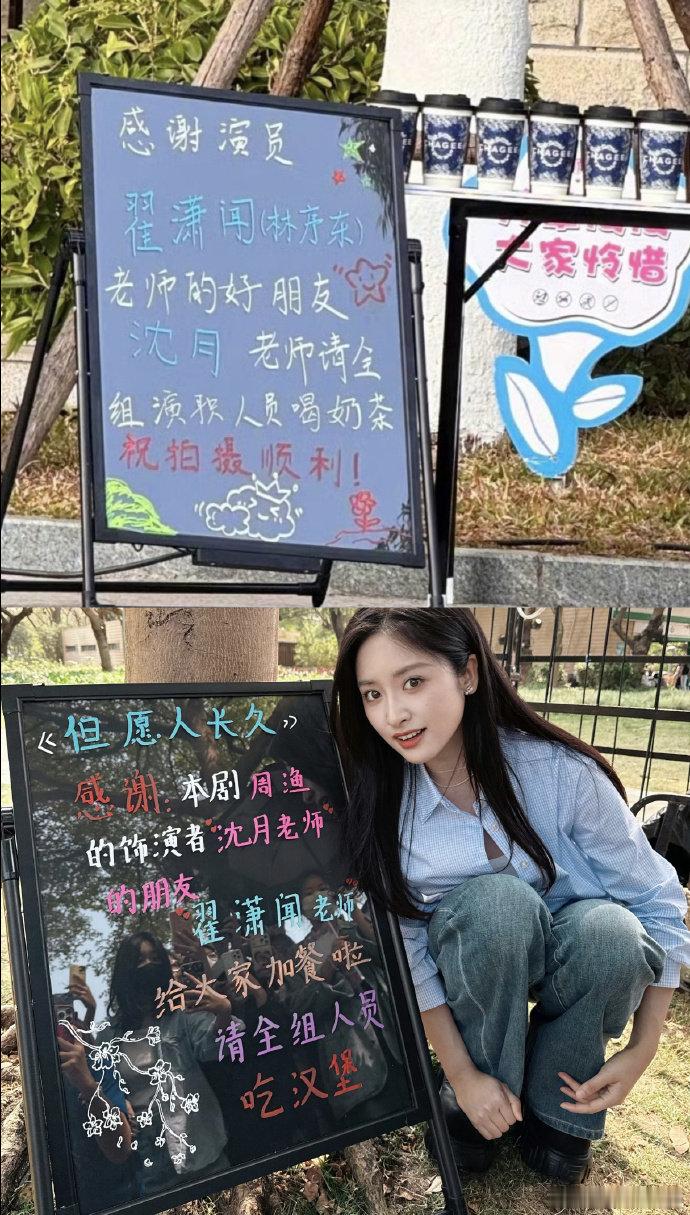 感谢演员
翟潇闻(林序东)
老师的好朋友
沈月 老师请全
组演职人员喝奶茶
祝拍摄顺利！
CHAGEE
大家怜惜
《但愿人长久》
感谢：本剧周渔
的饰演者"沈月老师"
的朋友
"翟潇闻老师"
给大家加餐啦
请全组人员
吃汉堡